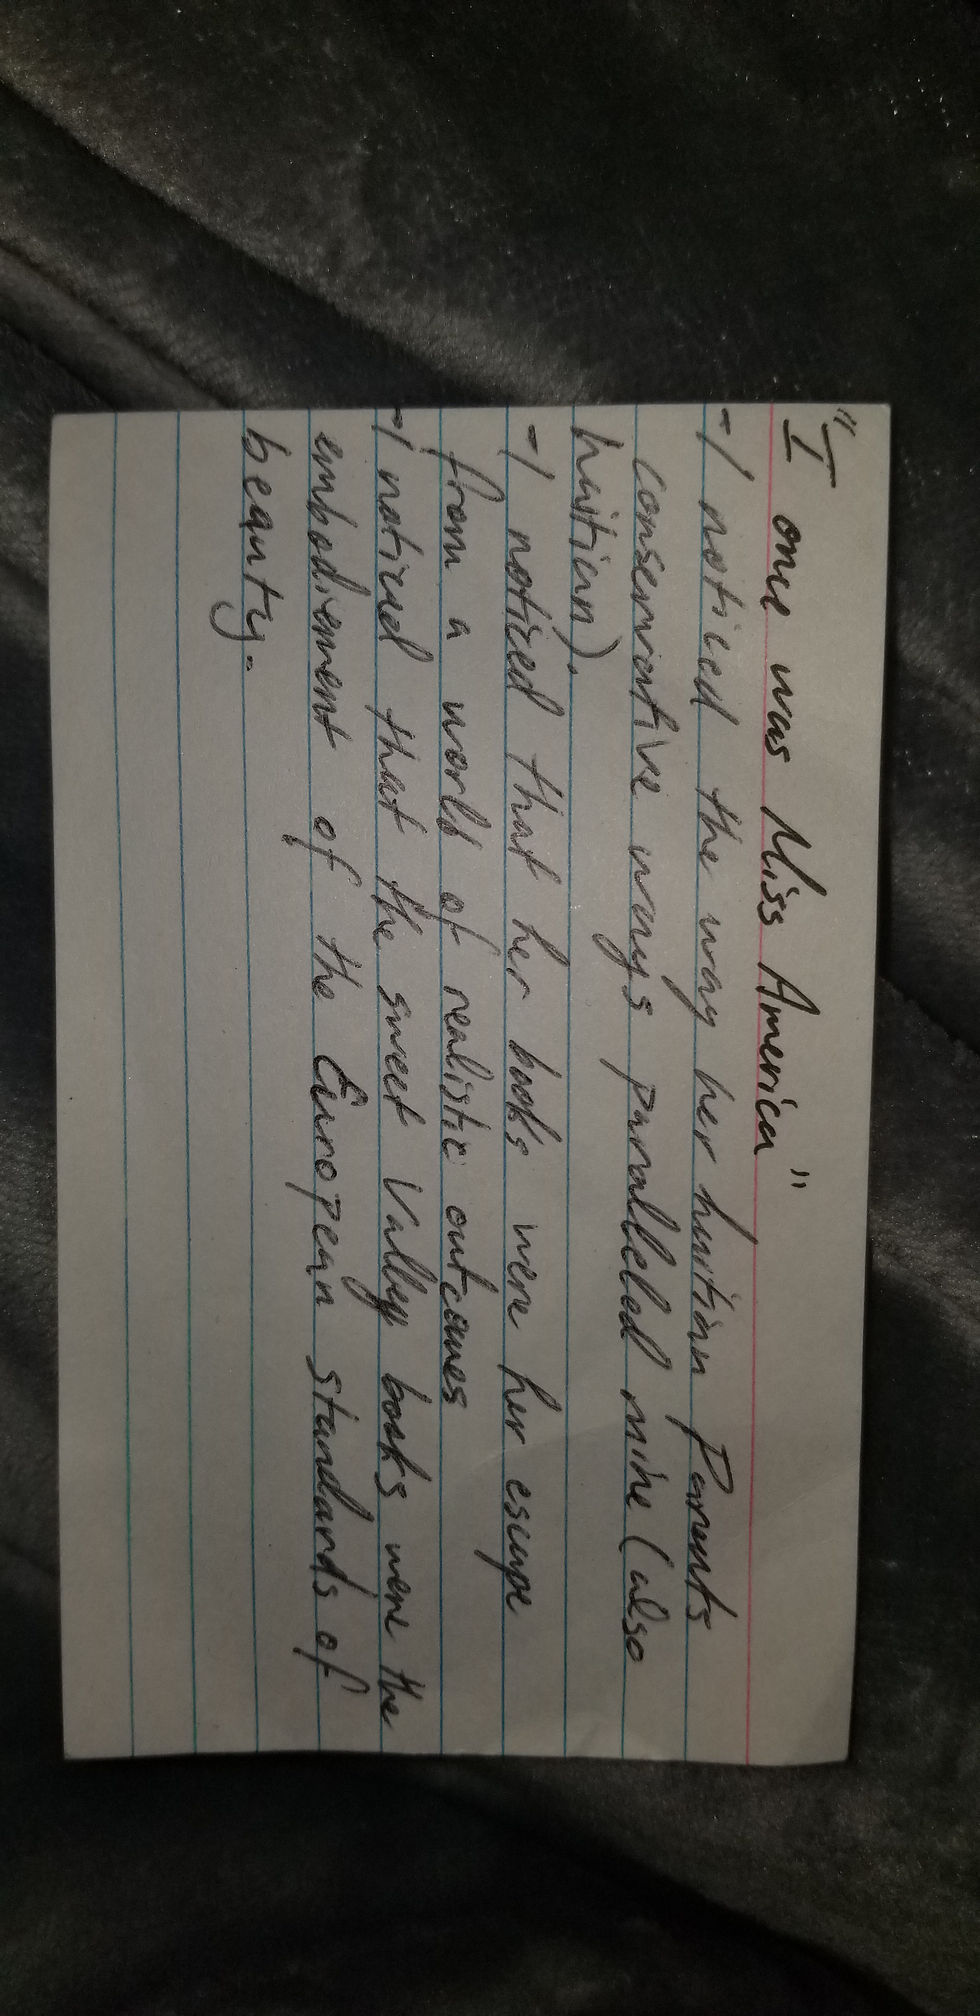 "I once was Miss America"
-I noticed the way her haitian Parents
conservative ways paralleled mine (also
haitian).
-I noticed that her books were her escape
from a world of realistic outcomes
-I noticed that the sweet Valley books were the
embodiement of the European standards of
beauty.